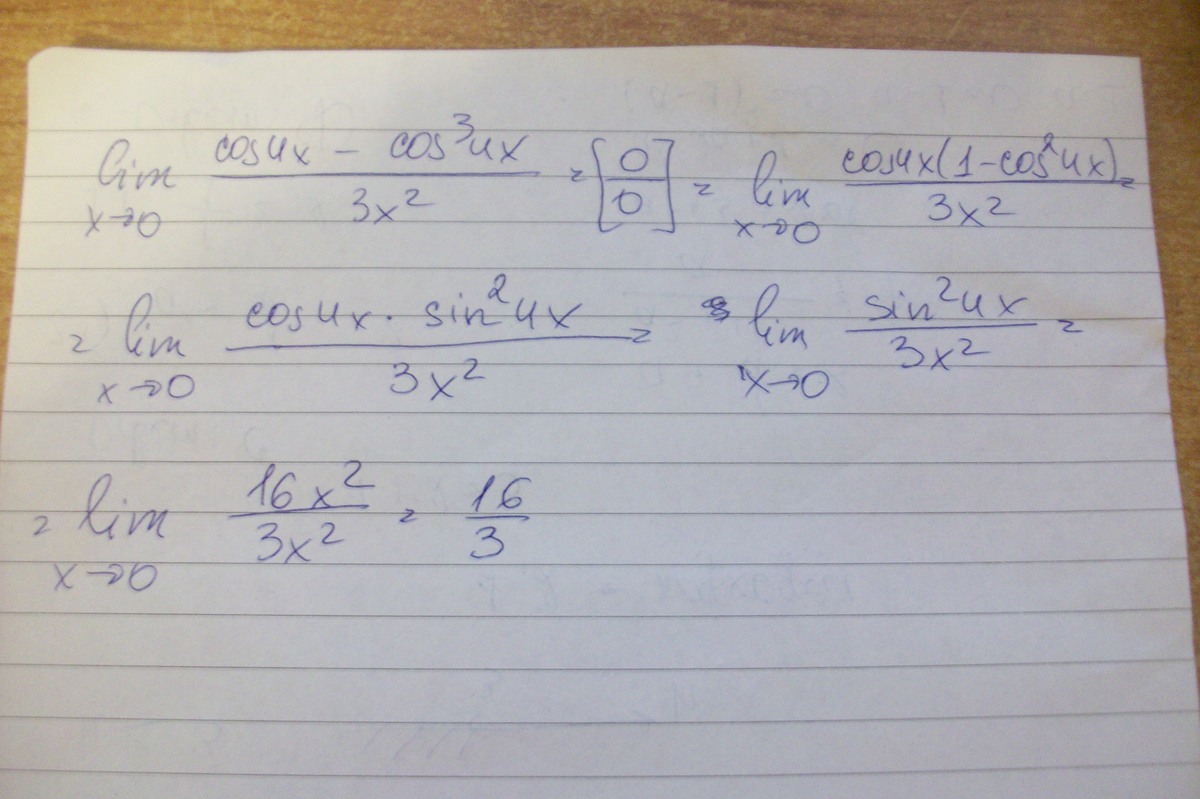 lim x→0 (cos4x − cos³4x)/(3x²) = [0/0] = lim x→0 (cos4x(1−cos²4x))/(3x²) =
= lim x→0 (cos4x · sin²4x)/(3x²) = lim x→0 (sin²4x)/(3x²) =
= lim x→0 (16x²)/(3x²) = 16/3